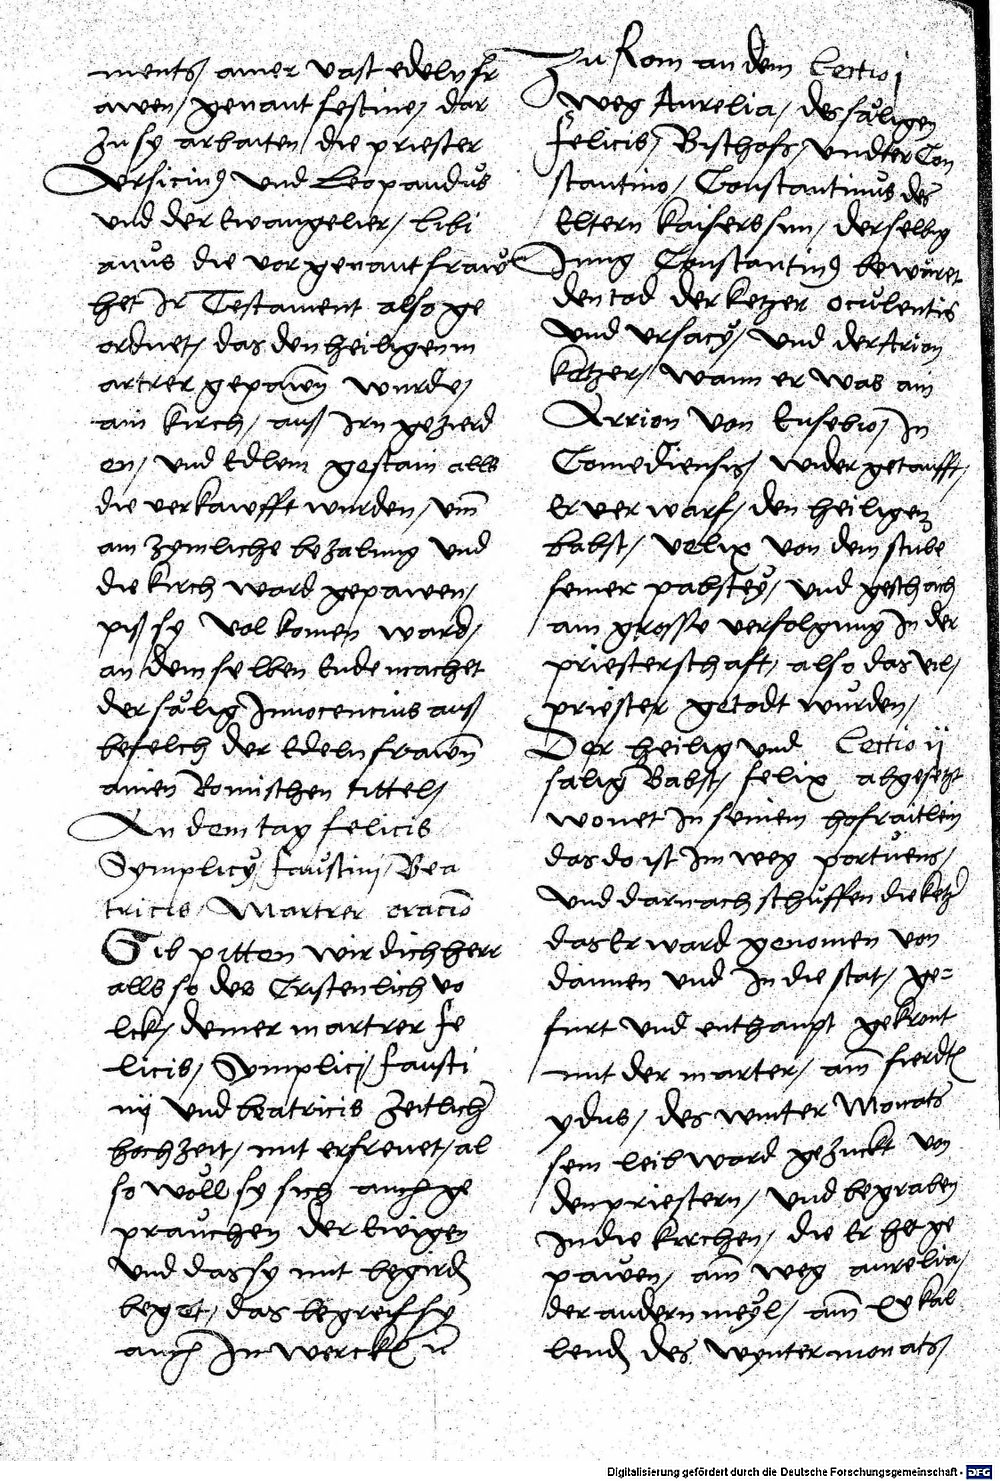 ments/ ainer vast edeln fr
awen/ genant festine/ dar
zu sy arbaiten/ die priester
Ursicinus vnd Leopardus
vnd der Ewangelier/ libi
anus die vor genant fraw
het Ir Testament also ge
ordnet/ das den heiligen m
artrer gepawen wurde/
ain kirch/ auß Irn gezierd
en/ vnd Edlem gestain alls
die verkawfft wurden/ vm
ain zymliche bezalung vnd
die kirch ward gepawen/
piß sy vol komen ward/
an dem selben Ende machet
der sälig Innocencius auß
befelch der Edeln frawen
ainen Romischen tittel/
An dem tag felicis
Symplicy faustini/ Bea
tricis/ Martrer oracio
Gib pitten wir dich herr
alls so des Cristenlich vo
lck/ deiner martrer fe
licis/ Symplicj/ fausti
nij vnd beatricis zeitlich
hochzeit/ mit erfreuet/ al
so wöll sy sich auch ge
prauchen der Ewigen
vnd das sy mit begird
beget/ das begreif sy
auch In werck
Zu Rom an dem Lectio j
weg Aurelia/ des säligen
felicis/ Bischofs/ vnd ter Con
stantino/ Constantinus des
Eltern kaisers sun/ derselbig
Jung Constantinus bewäret
den tod der ketzer oculentis
vnd vrsacy/ vnd der Arion
ketzer/ wann er was ain
Arrion von Eusebio/ In
Comediensis/ wider getaufft/
Er ver warf/ den heiligen
babst/ velix von dem stule
seiner pabstey/ vnd geschach
ain grosse verfolgung In der
priesterschaft/ also das vil/
priester getodt wurden/
Der heilig vnd Lectio ij
salig Babst/ felix abgesetzt
wonet In seinem hofraitlein
das do ist Im weg portuens/
vnd darnach schuffen die ketz
das Er ward genomen von
dannen vnd In die stat/ ge-
furt vnd enthaupt gekront
mit der marter/ am fierdt
ydus/ des winter Monats
sein leib ward gezuckt von
den priestern/ vnd begraben
In die kirchen/ die Er het ge
pawen/ am weg aurelia/
der andern meyl/ am xv kal
lend des wyntermonats/
Digitalisierung gefördert durch die Deutsche Forschungsgemeinschaft - DFG